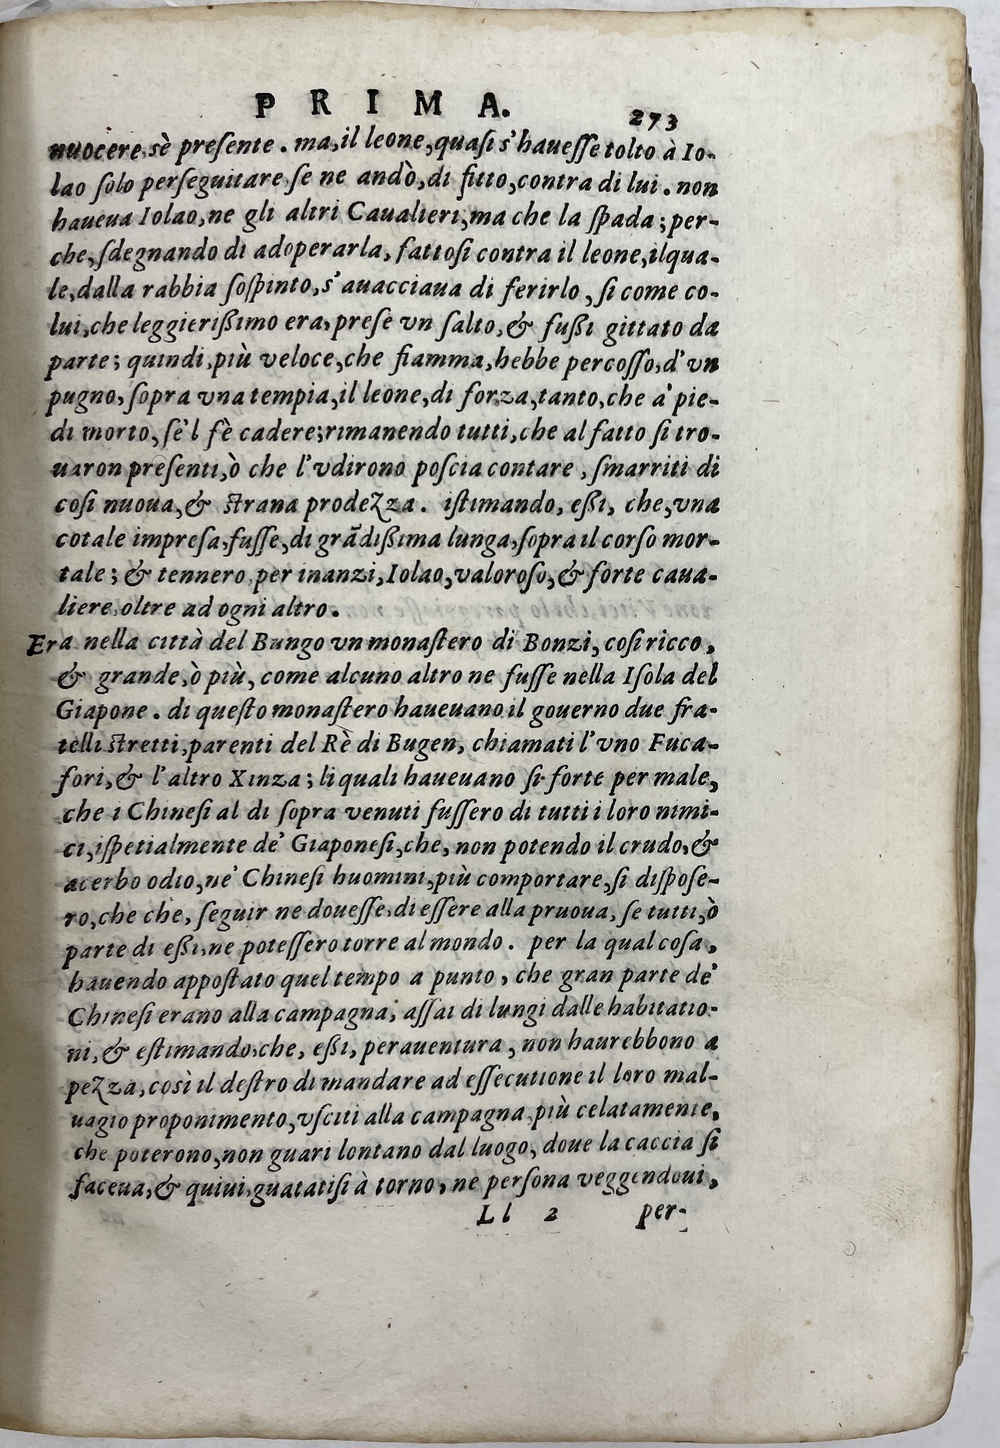 PRIMA.
273
nuocere, sè preſente. ma, il leone, quaſi s'haueſſe tolto à Io-
lao ſolo perſeguitare, ſe ne andò, di fitto, contra di lui. non
haueua Iolao, ne gli altri Caualieri, ma che la ſpada; per-
che, ſdegnando di adoperarla, fattoſi contra il leone, ilqua-
le, dalla rabbia ſoſpinto, s'auacciaua di ferirlo, ſi come co-
lui, che leggierißimo era, preſe vn ſalto, & fußi gittato da
parte; quindi, più veloce, che fiamma, hebbe percoſſo, d'vn
pugno, ſopra vna tempia, il leone, di forza, tanto, che à pie-
di morto, ſe'l fè cadere; rimanendo tutti, che al fatto ſi tro-
uaron preſenti, ò che l'vdirono poſcia contare, ſmarriti di
coſi nuoua, & ſtrana prodezza. iſtimando, eßi, che, vna
cotale impreſa, fuſſe, di grādißima lunga, ſopra il corſo mor-
tale; & tennero, per inanzi, Iolao, valoroſo, & forte caua-
liere, oltre ad ogni altro.
Era nella città del Bungo vn monaſtero di Bonzi, coſi ricco,
& grande, ò più, come alcuno altro ne fuſſe nella Iſola del
Giapone. di queſto monaſtero haueuano il gouerno due fra-
telli ſtretti, parenti del Rè di Bugen, chiamati l'vno Fuca-
fori, & l'altro Xinza; li quali haueuano ſi forte per male,
che i Chineſi al di ſopra venuti fuſſero di tutti i loro nimi-
ci, iſpetialmente de' Giaponeſi, che, non potendo il crudo, &
acerbo odio, ne' Chineſi huomini, più comportare, ſi diſpoſe-
ro, che che, ſeguir ne doueſſe, di eſſere alla pruoua, ſe tutti, ò
parte di eßi, ne poteſſero torre al mondo. per la qual coſa,
hauendo appoſtato quel tempo a punto, che gran parte de'
Chineſi erano alla campagna, aſſai di lungi dalle habitatio-
ni, & eſtimando, che, eßi, perauentura, non haurebbono a
pezza, così il deſtro di mandare ad eſſecutione il loro mal-
uagio proponimento, vſciti alla campagna più celatamente,
che poterono, non guari lontano dal luogo, doue la caccia ſi
faceua, & quiui, guatatiſi à torno, ne perſona veggendoui,
Ll 2 per-